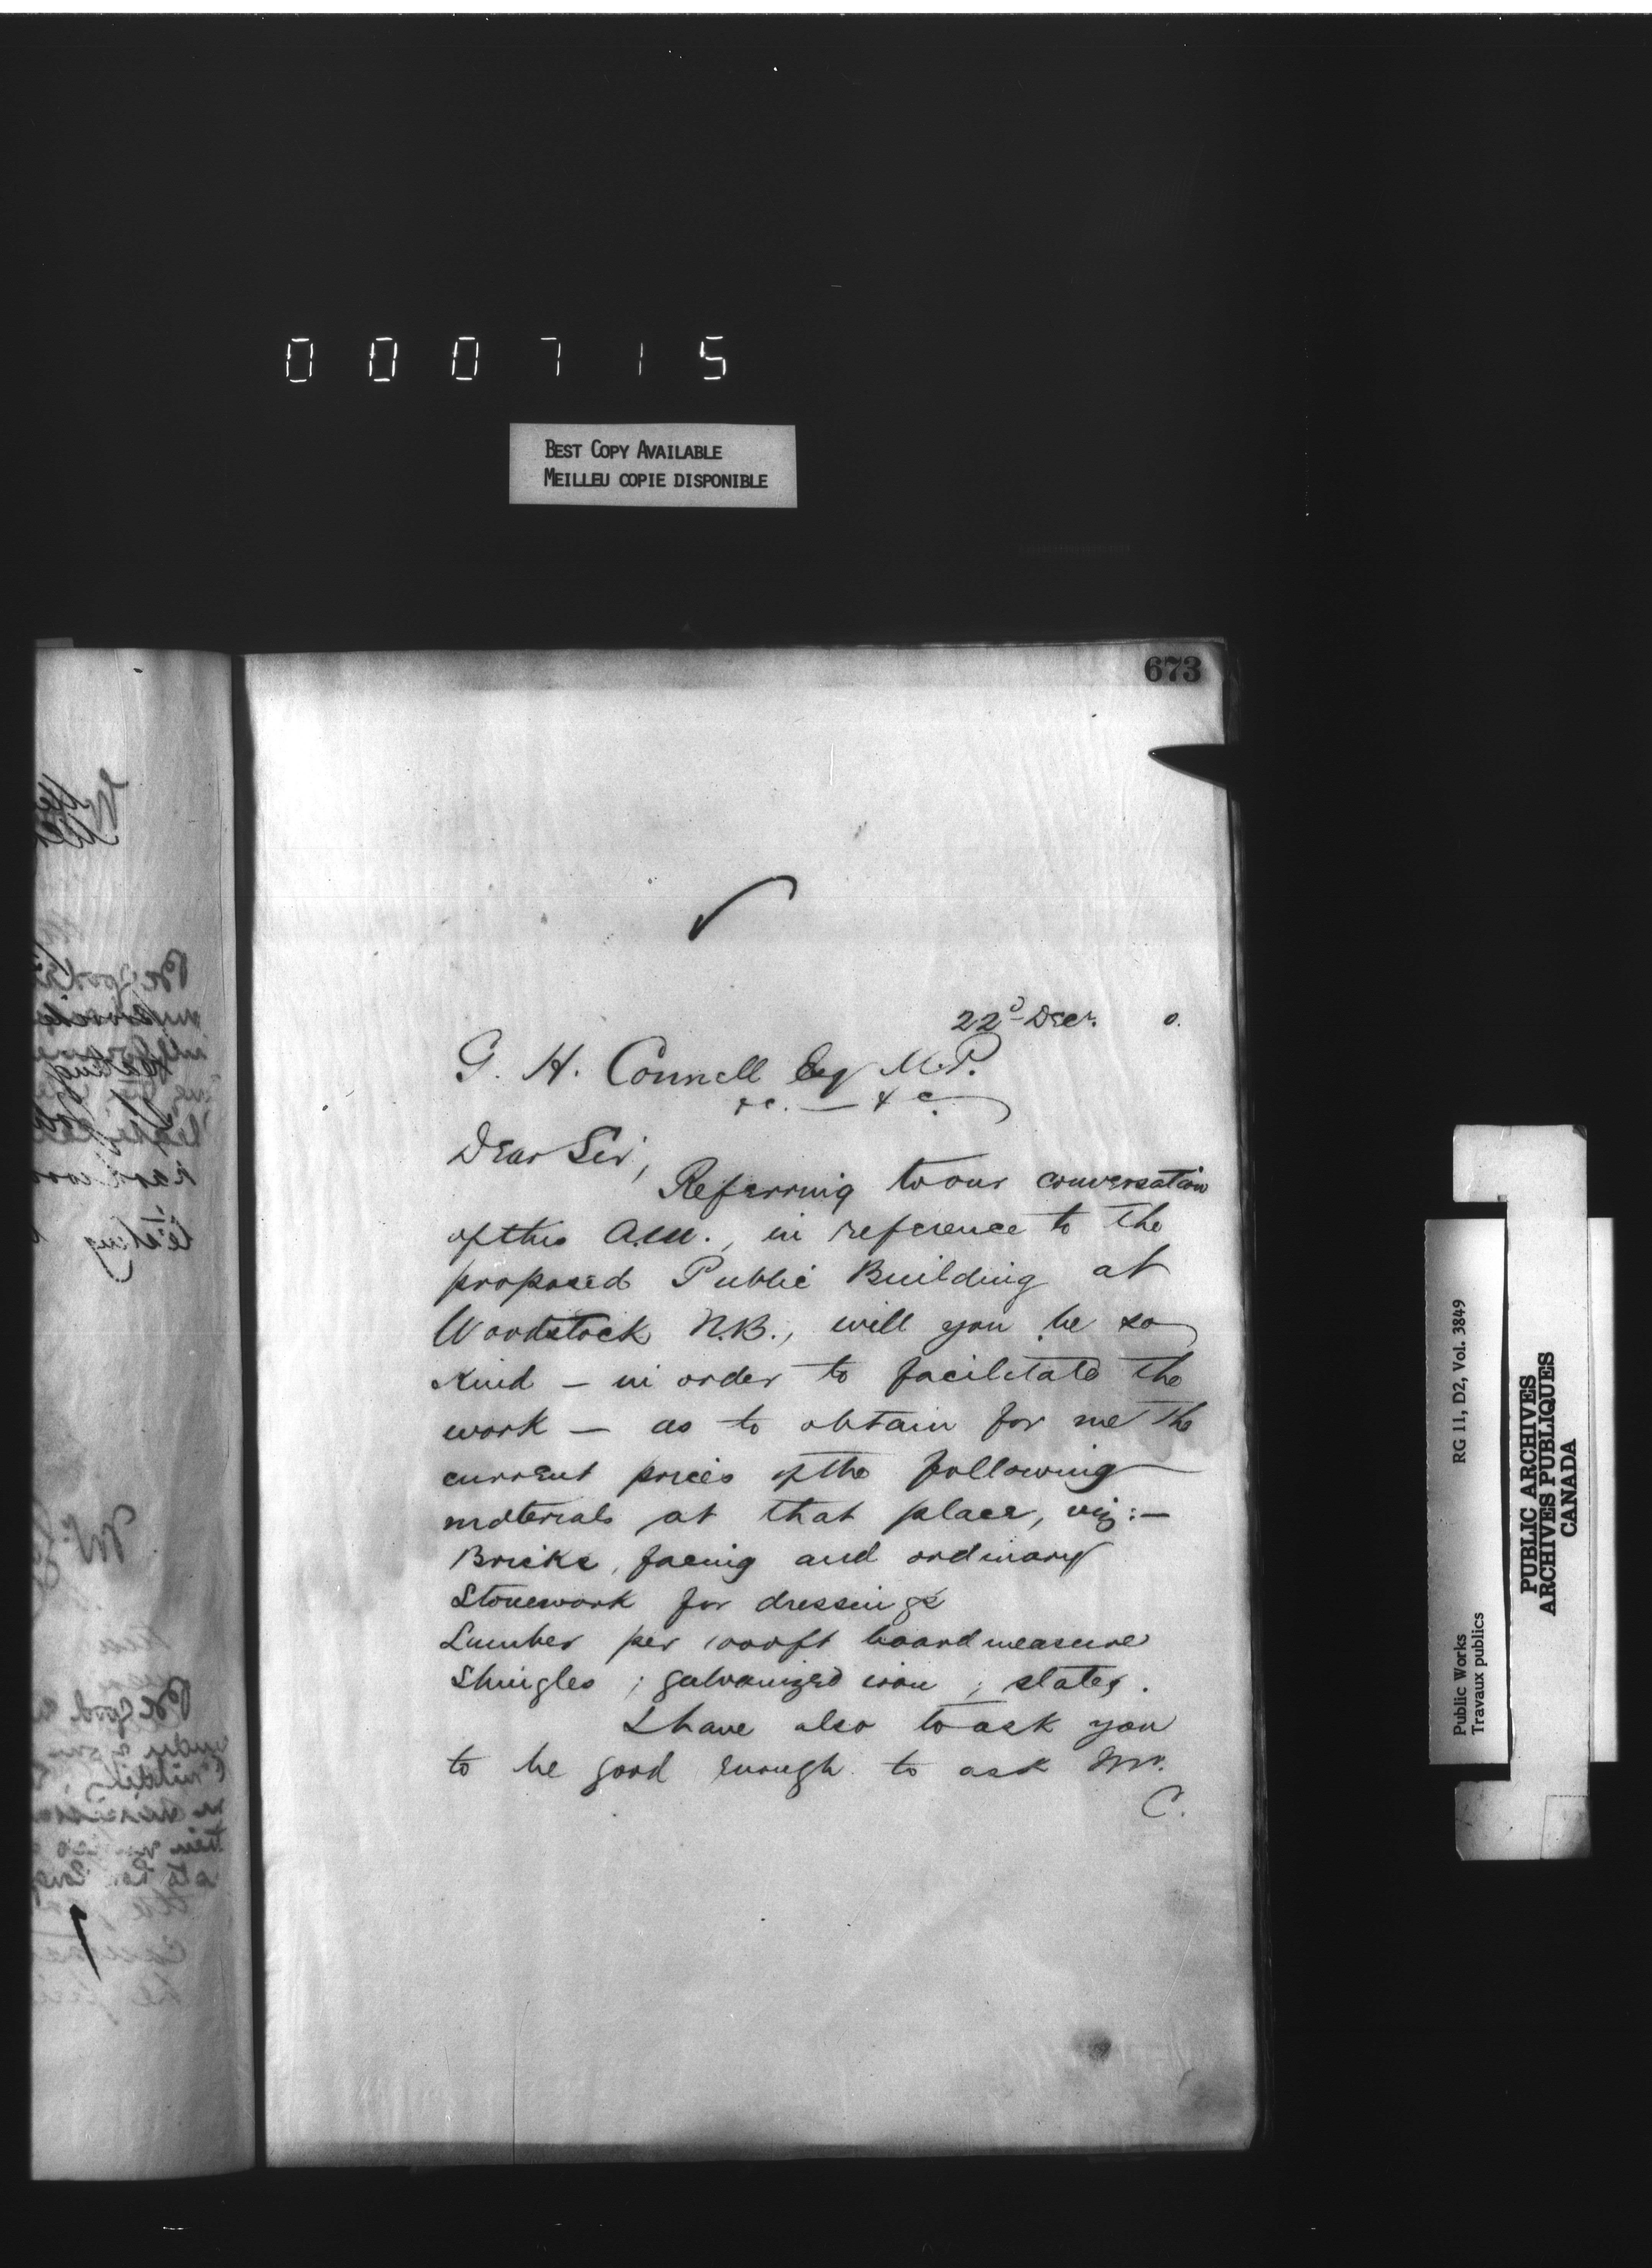 000715
BEST COPY AVAILABLE
MEILLEU COPIE DISPONIBLE
673
22d Decr. 0.
G. H. Connell Esq M.P.
&c. — &c.
Dear Sir,
Referring to our conversation
of this A.M., in reference to the
proposed Public Building at
Woodstock N.B., will you be so
kind — in order to facilitate the
work — as to obtain for me the
current prices of the following
materials at that place, viz:—
Bricks, facing and ordinary
Stonework for dressings
Lumber per 1000ft board measure
Shingles ; galvanized iron ; slates.
I have also to ask you
to be good enough to ask Mr.
C.
Public Works
Travaux publics
RG 11, D2, Vol. 3849
PUBLIC ARCHIVES
ARCHIVES PUBLIQUES
CANADA